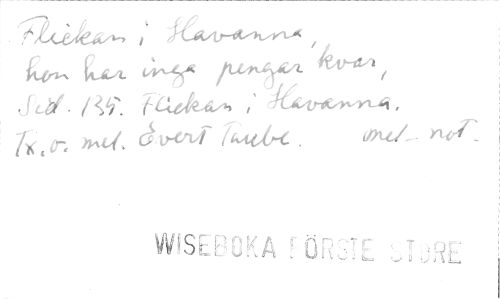 Flickan i Havanna,
hon har inga pengar kvar,
Sid. 135. Flickan i Havanna.
Tx. o. mel. Evert Taube. mel-not.
WISEBOKA FÖRSTE STORE